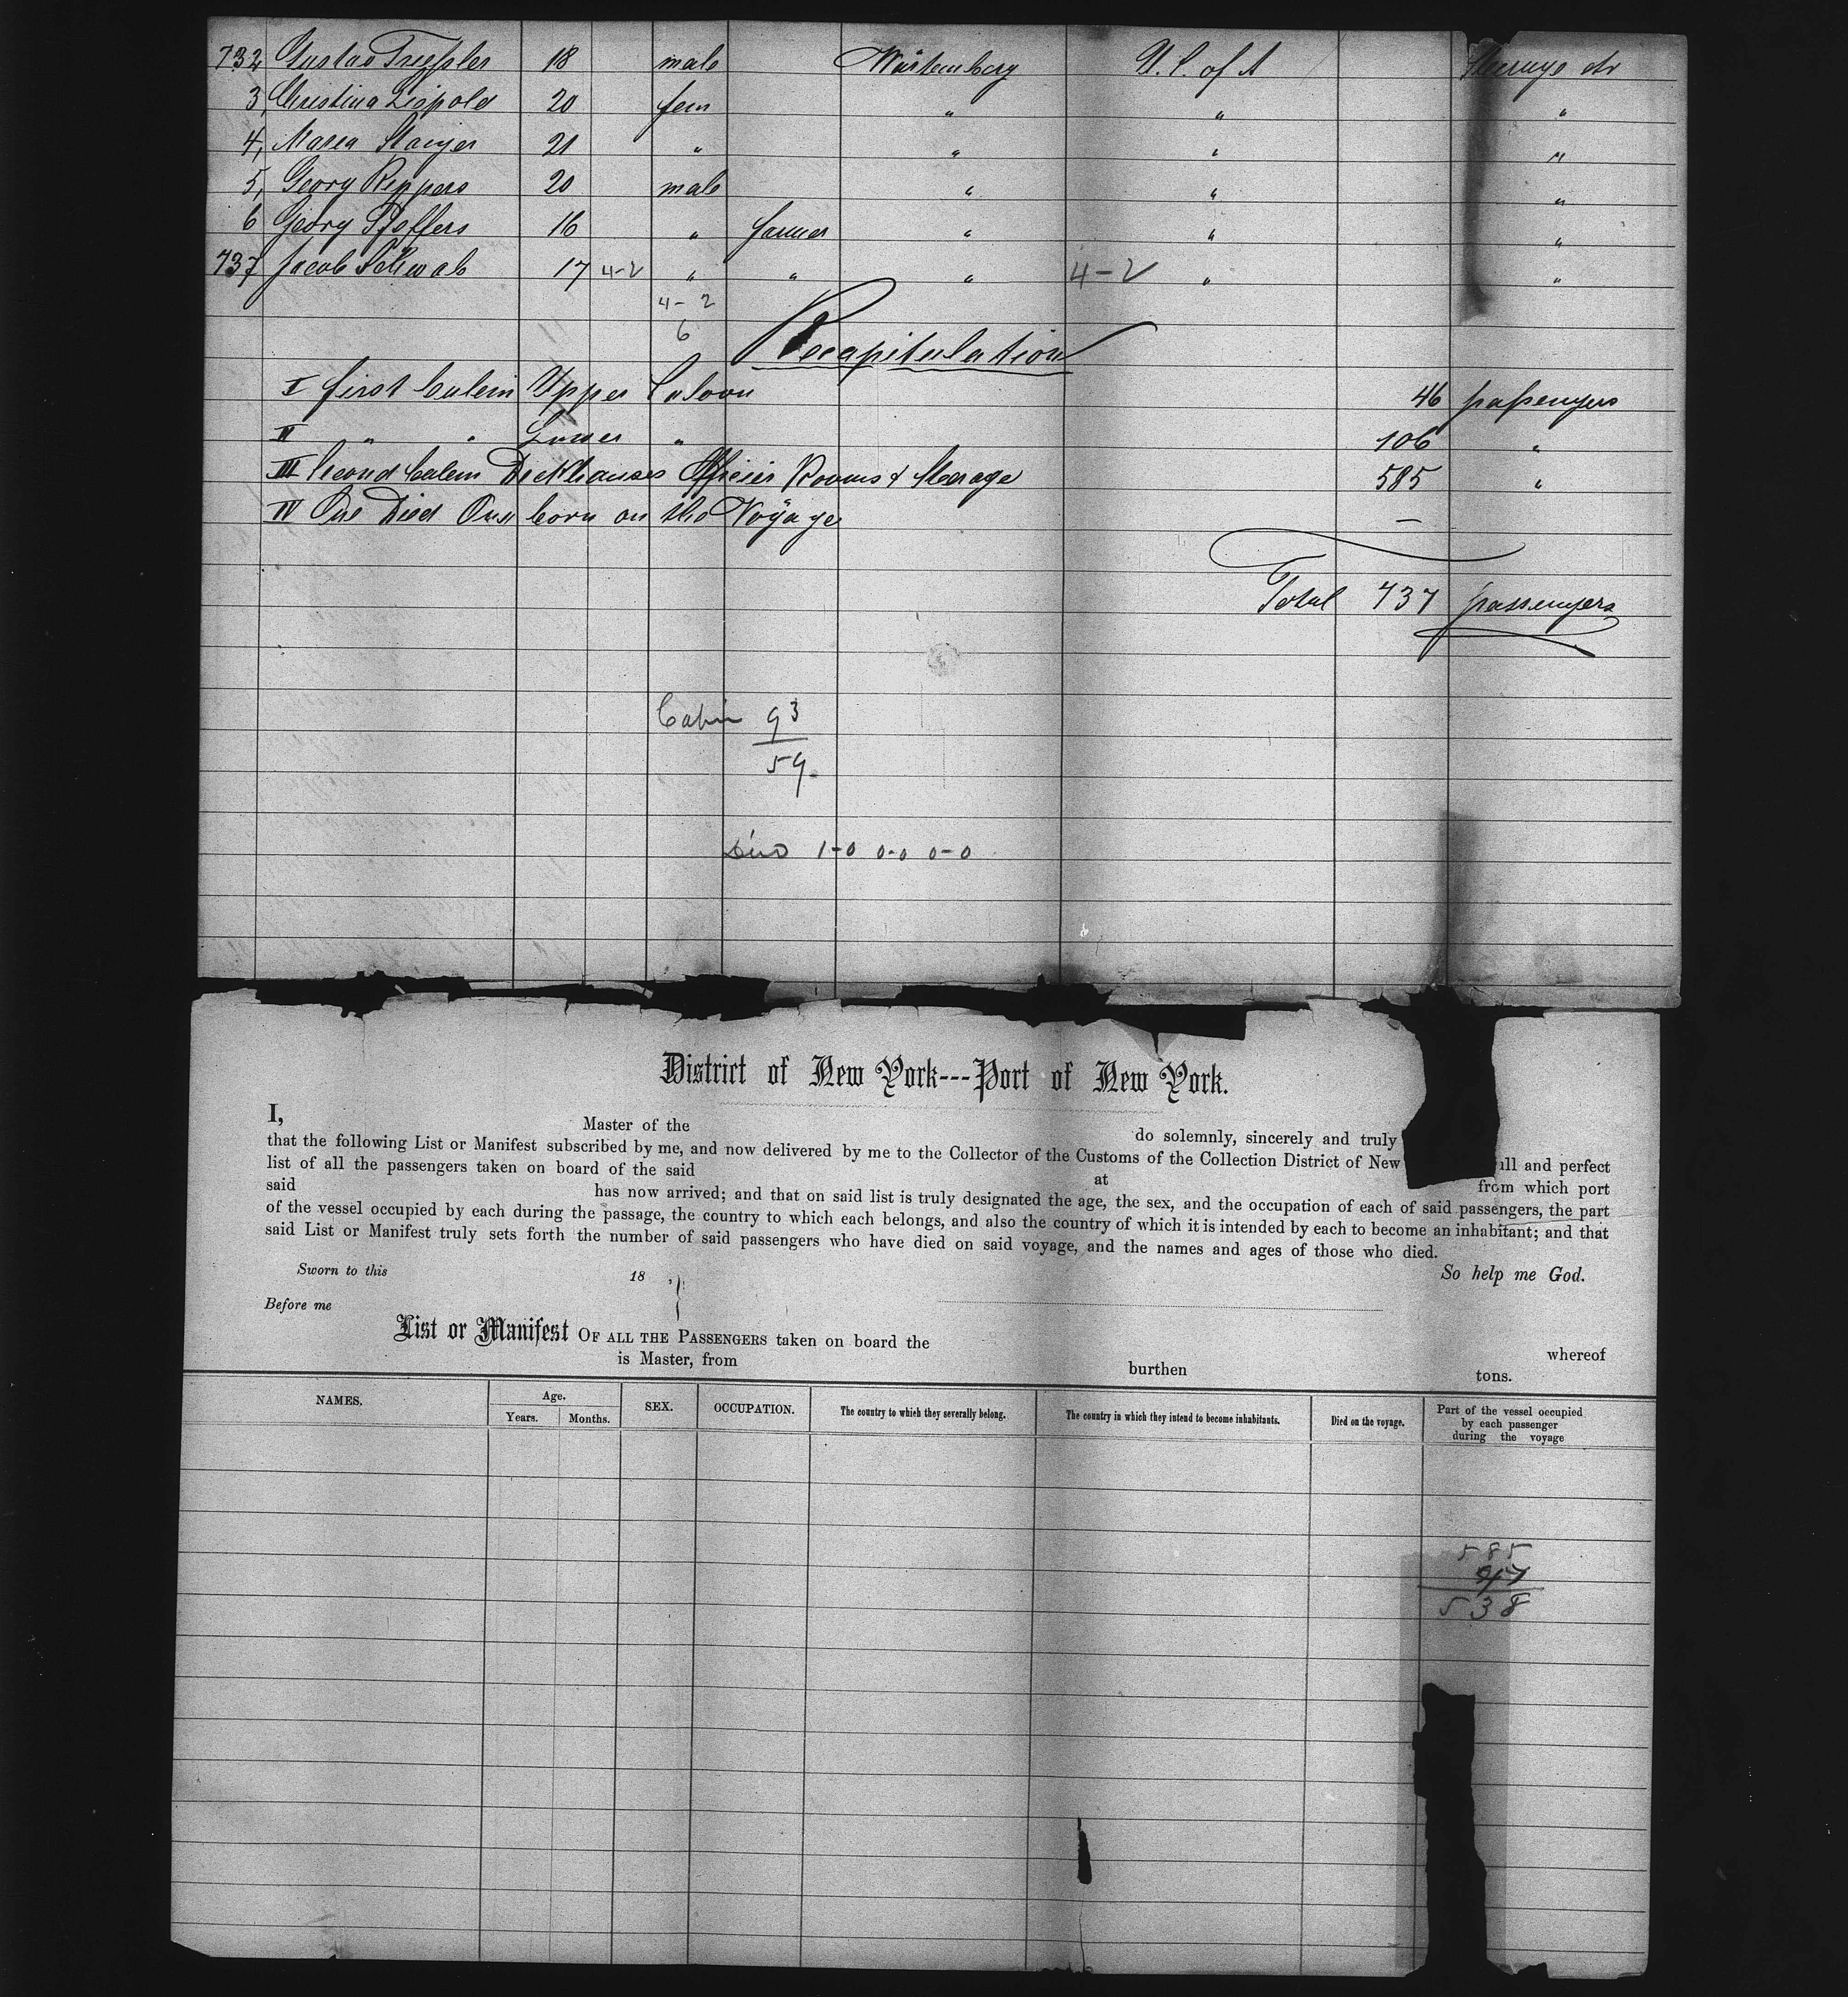 732 Gustav 18 male Würtemberg U.S. of A Steerage
3, Christina Lippold 20 fem " " "
4, Maria 21 " " " "
5, Georg Reppers 20 male " " "
6 Georg 16 " farmer " " "
737 Jacob Schwab 17 4-2 " " " 4-2 " "
4-2
6
Recapitulation
I first Cabin Upper Saloon 46 passengers
II " " Lower " 106 "
III Second Cabin Deckhouses Officier Rooms & Steerage 585 "
IV One Died One born on the Voyage —
Total 737 passengers
Cabin 93
59
1-0 0-0 0-0
District of New York---Port of New York.
I, Master of the do solemnly, sincerely and truly
that the following List or Manifest subscribed by me, and now delivered by me to the Collector of the Customs of the Collection District of New ull and perfect
list of all the passengers taken on board of the said at from which port
said has now arrived; and that on said list is truly designated the age, the sex, and the occupation of each of said passengers, the part
of the vessel occupied by each during the passage, the country to which each belongs, and also the country of which it is intended by each to become an inhabitant; and that
said List or Manifest truly sets forth the number of said passengers who have died on said voyage, and the names and ages of those who died.
Sworn to this 18 So help me God.
Before me
List or Manifest OF ALL THE PASSENGERS taken on board the whereof
is Master, from burthen tons.
NAMES. Age. Years. Months. SEX. OCCUPATION. The country to which they severally belong. The country in which they intend to become inhabitants. Died on the voyage. Part of the vessel occupied by each passenger during the voyage
585
47
538